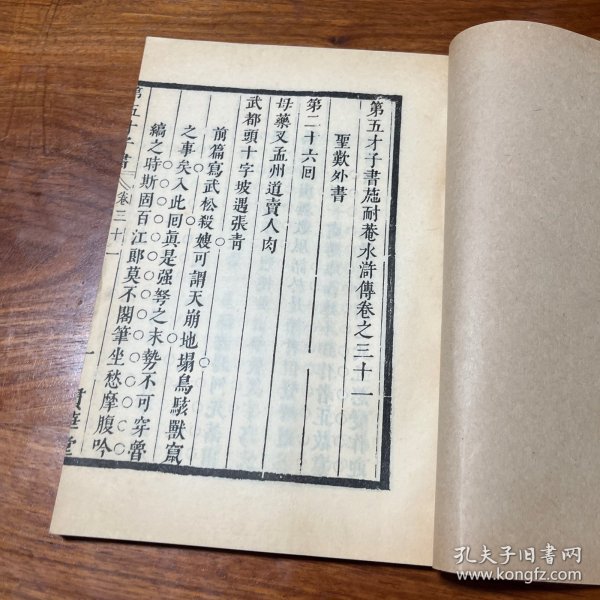 第五才子書施耐菴水滸傳卷之三十一
聖歎外書
第二十六回
母藥叉孟州道賣人肉
武都頭十字坡遇張青
前篇寫武松殺嫂可謂天崩地塌鳥駭獸竄
之事矣入此回眞是强弩之末勢不可穿魯
縞之時斯固百江郎莫不閣筆坐愁摩腹吟
第五才子書
卷三十一
一
貫華堂
孔夫子旧书网
www.kongfz.com